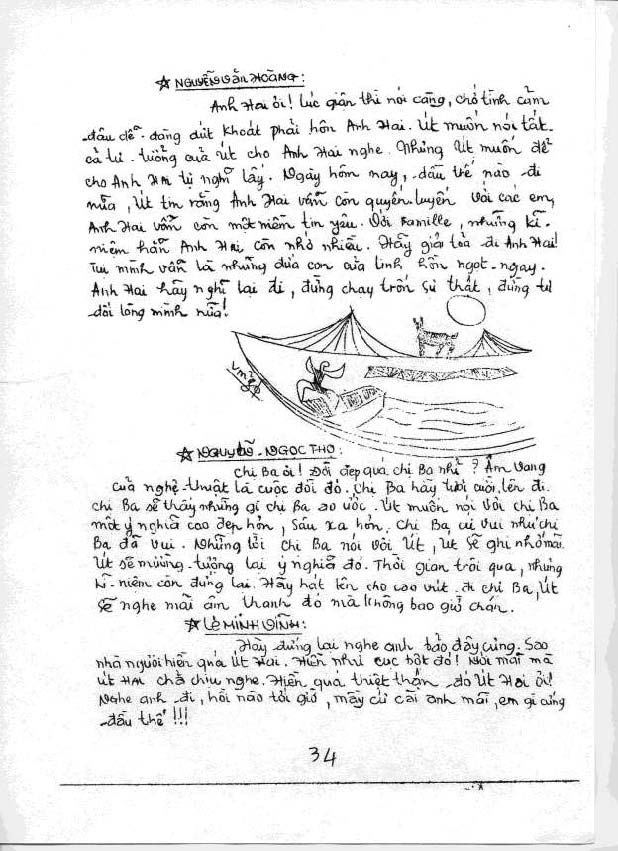 ☆ NGUYỄN VĂN HOÀNG:
Anh Hai ơi! Lúc giận thì nói căng, chớ tình cảm
đâu dễ dàng dứt khoát phải hôn Anh Hai. Út muốn nói tất
cả tư tưởng của Út cho Anh Hai nghe. Nhưng Út muốn để
cho Anh Hai tự nghĩ lấy. Ngày hôm nay, dẫu thế nào đi
nữa, Út tin rằng Anh Hai vẫn còn quyến luyến với các em,
Anh Hai vẫn còn một niềm tin yêu. Với Famille, những kĩ
niệm hẳn Anh Hai còn nhớ nhiều. Hãy giải tỏa đi Anh Hai!
Tụi mình vẫn là những đứa con của linh hồn ngọt ngay.
Anh Hai hãy nghĩ lại đi, đừng chạy trốn sự thật, đừng tự
dối lòng mình nữa!
☆ NGUYỄN NGỌC THO:
Chị Ba ơi! Đời đẹp quá chị Ba nhỉ? Âm vang
của nghệ thuật là cuộc đời đó. Chị Ba hãy tươi cười lên đi.
chị Ba sẽ thấy những gì chị Ba ao ước. Út muốn nói với chị Ba
một ý nghĩa cao đẹp hơn, sâu xa hơn. Chị Ba cứ vui như chị
Ba đã vui. Những lời chị Ba nói với Út, Út sẽ ghi nhớ mãi.
Út sẽ mường tượng lại ý nghĩa đó. Thời gian trôi qua, nhưng
kĩ niệm còn đứng lại. Hãy hát lên cho cao vút đi chị Ba, Út
sẽ nghe mãi âm thanh đó mà không bao giờ chán.
☆ LÊ MINH VĨNH:
Hãy đứng lại nghe anh bảo đây cưng. Sao
nhà ngươi hiền quá Út Hai. Hiền như cục bột đó! Nói mãi mà
Út Hai chả chịu nghe. Hiền quá triệt thân đó Út Hai ơi!
Nghe anh đi, hồi nào tới giờ, mầy cứ cãi anh mãi, em gì cứng
đầu thế!!!
34